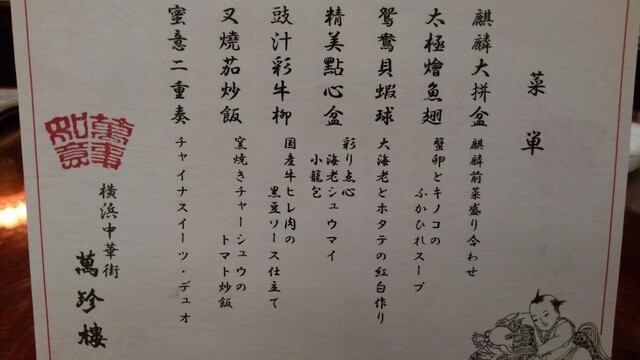 菜単
麒麟大拼盆 麒麟前菜盛り合わせ
太極燴魚翅 蟹卵とキノコの
ふかひれスープ
鴛鴦貝蝦球 大海老とホタテの紅白作り
精美點心盆 彩り点心
海老シュウマイ
小籠包
豉汁彩牛柳 国産牛ヒレ肉の
黒豆ソース仕立て
叉燒茄炒飯 窯焼きチャーシュウの
トマト炒飯
蜜意二重奏 チャイナスイーツ・デュオ
萬事
如意
横浜中華街
萬珍樓